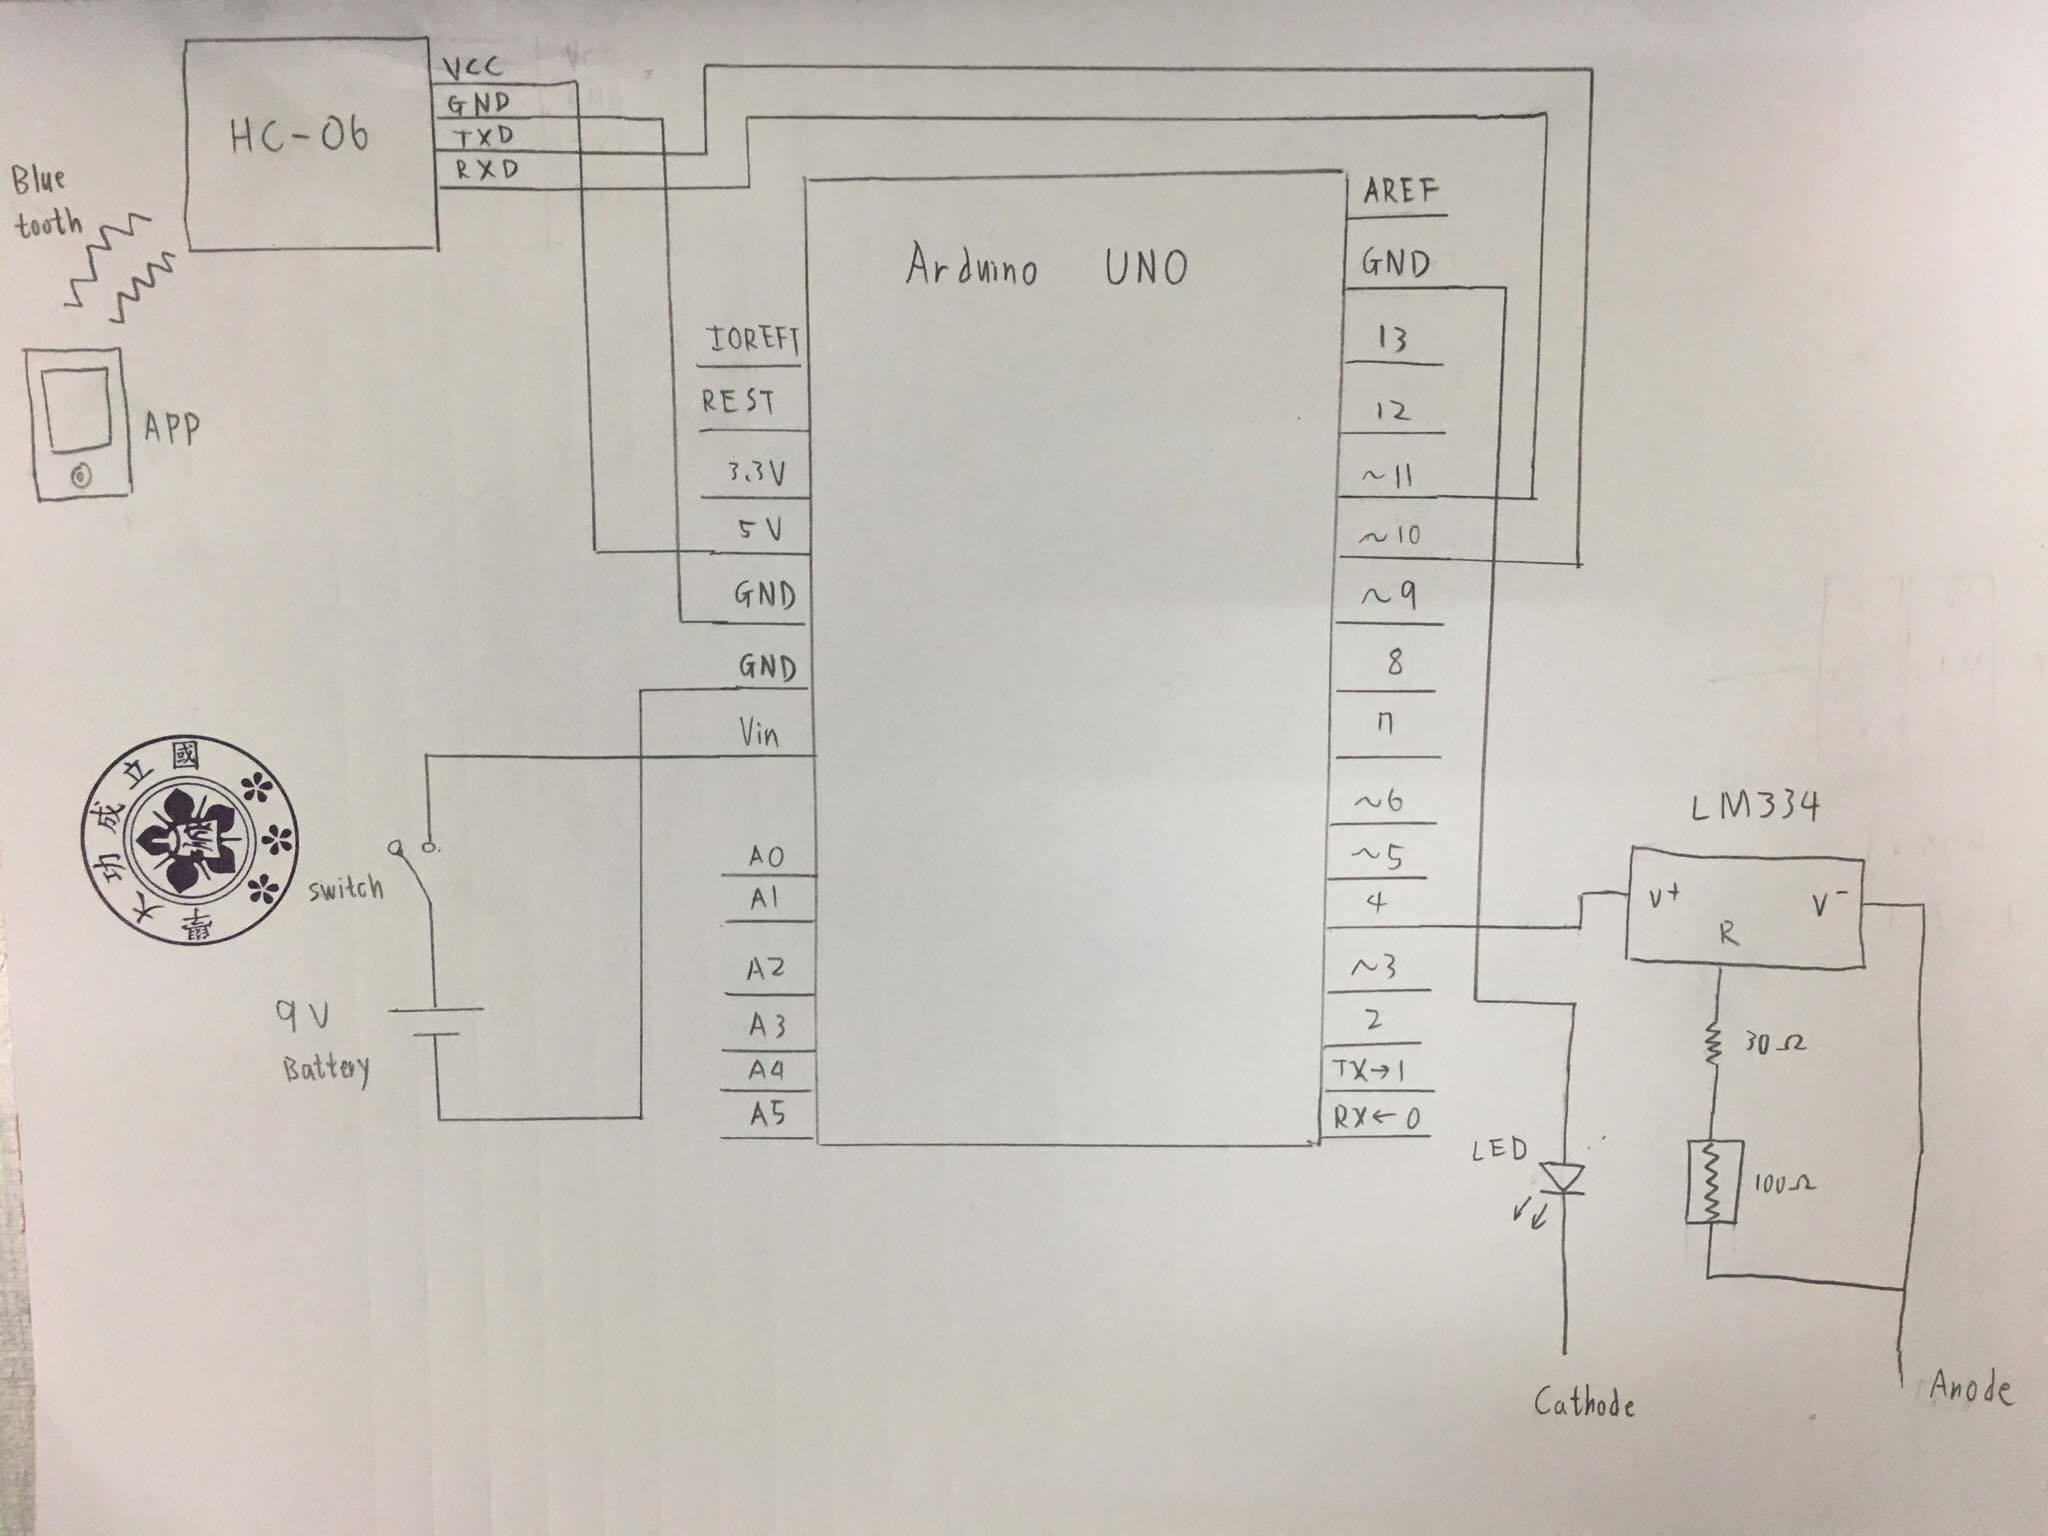 VCC
GND
TXD
RXD
HC-06
Blue
tooth
APP
Arduino UNO
IOREFT
REST
3.3V
5V
GND
GND
Vin
A0
A1
A2
A3
A4
A5
AREF
GND
13
12
~11
~10
~9
8
7
~6
~5
4
~3
2
TX→1
RX←0
國立成功大學
switch
9V
Battery
LM334
V+
V-
R
30Ω
100Ω
LED
Cathode
Anode